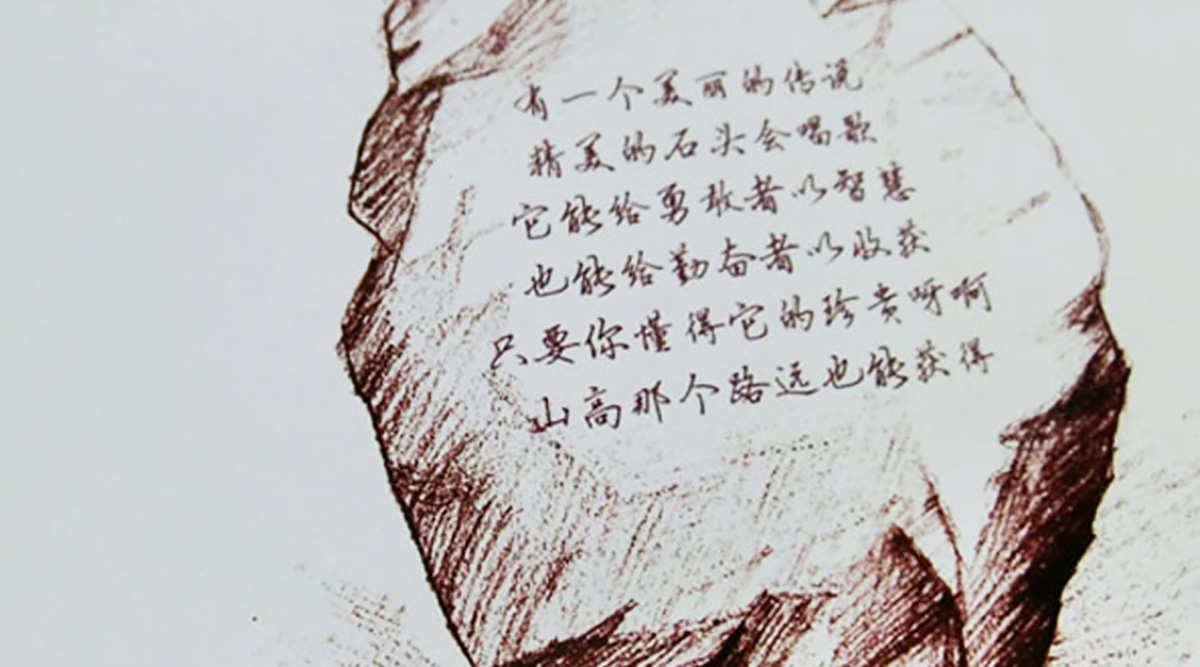 有一个美丽的传说
精美的石头会唱歌
它能给勇敢者以智慧
也能给勤奋者以收获
只要你懂得它的珍贵呀啊
山高那个路远也能获得